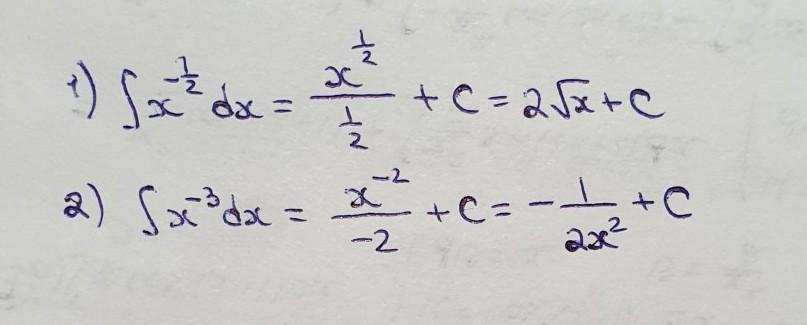 1) ∫x^{-1/2} dx = \frac{x^{1/2}}{1/2} + C = 2√x + C
2) ∫x^{-3} dx = \frac{x^{-2}}{-2} + C = -\frac{1}{2x^2} + C